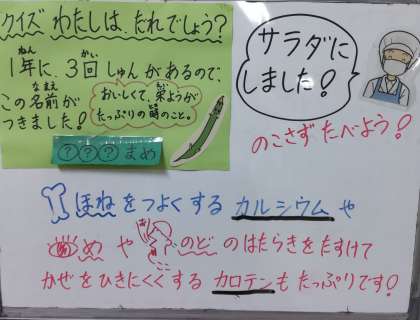 クイズ わたしは、だれでしょう？
1年に、3回 しゅんがあるので、
この名前が
つきました！
おいしくて、栄ようが
たっぷりの時のこと。
？？？まめ
サラダに
しました！
のこさず たべよう！
ほねをつよくする カルシウム や
め や のど のはたらきをたすけて
かぜをひきにくくする カロテンも たっぷりです！